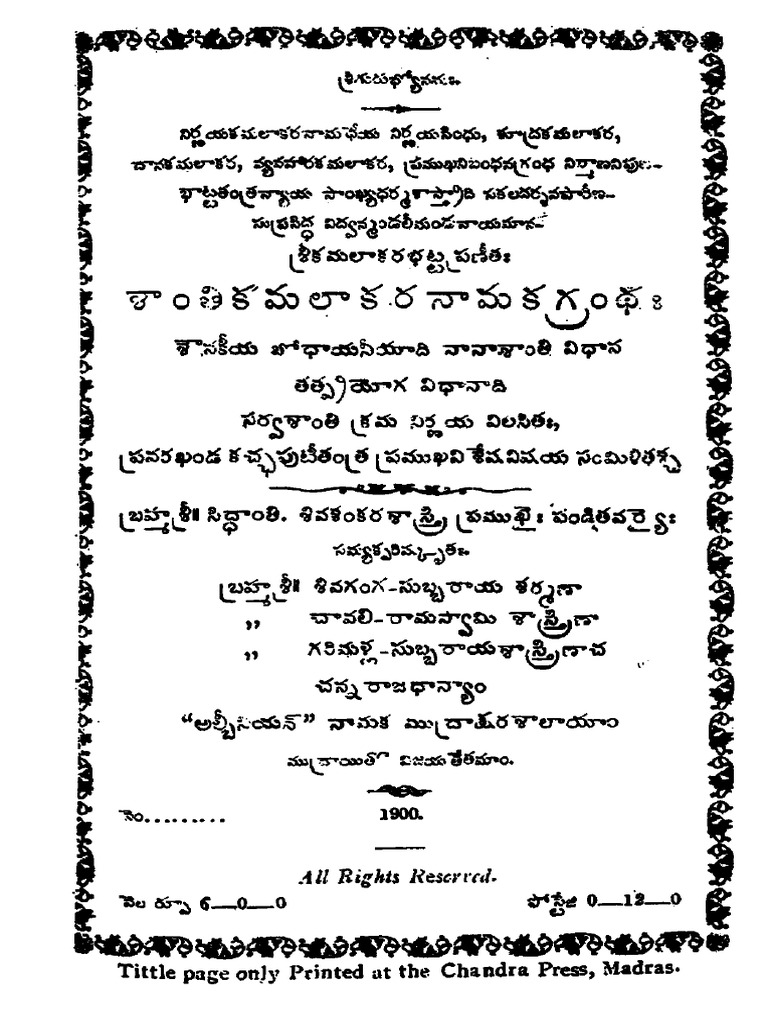 శ్రీగురుభ్యోనమః.
నిర్ణయకమలాకరనామధేయ నిర్ణయసింధు, శూద్రకమలాకర,
దానకమలాకర, వ్యవహారకమలాకర, ప్రముఖనిబంధనగ్రంథ నిర్మాణనిపుణ-
భాట్టతంత్రన్యాయ సాంఖ్యధర్మశాస్త్రాది సకలదర్శనపారీణ-
సుప్రసిద్ధ విద్వన్మండలీమండనాయమాన-
శ్రీకమలాకరభట్టప్రణీతః
శాంతికమలాకరనామకగ్రంథః
శౌనకీయ బోధాయనీయాది నానాశాంతి విధాన
తత్ప్రయోగ విధానాది
సర్వశాంతి క్రమ నిర్ణయ విలసితః,
ప్రవరఖండ కచ్ఛపుటీతంత్ర ప్రముఖవిశేషవిషయ సంమిళితశ్చ
బ్రహ్మశ్రీ॥ సిద్ధాంతి. శివశంకరశాస్త్రి ప్రముఖైః పండితవర్యైః
సమ్యక్పరిష్కృతః.
బ్రహ్మశ్రీ॥ శివగంగ-సుబ్బరాయ శర్మణా
,, చావలి-రామస్వామి శాస్త్రిణా
,, గరిమళ్ల-సుబ్బరాయశాస్త్రిణాచ
చన్నరాజధాన్యాం
“అల్బీనియన్” నామక ముద్రాక్షరశాలాయాం
ముద్రాయితో విజయతేతమాం.
నెం.........
1900.
All Rights Reserved.
వెల రూపు 6—0—0
పోస్టేజి 0—12—0
Tittle page only Printed at the Chandra Press, Madras.